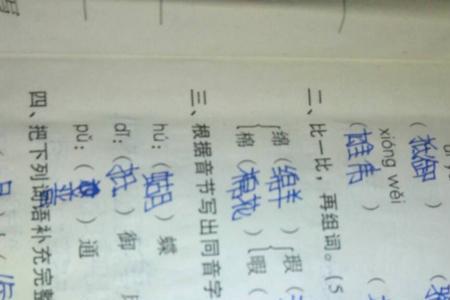 (抵御)
xióng wěi
(雄伟)
二、比一比,再组词。(5
绵(绵羊) 瑕(
棉(棉花) 暇(
三、根据音节写出同音字
hú:(蝴)蝶
dǐ:(抵)御
pǔ:(普)通
四、把下列词语补充完整